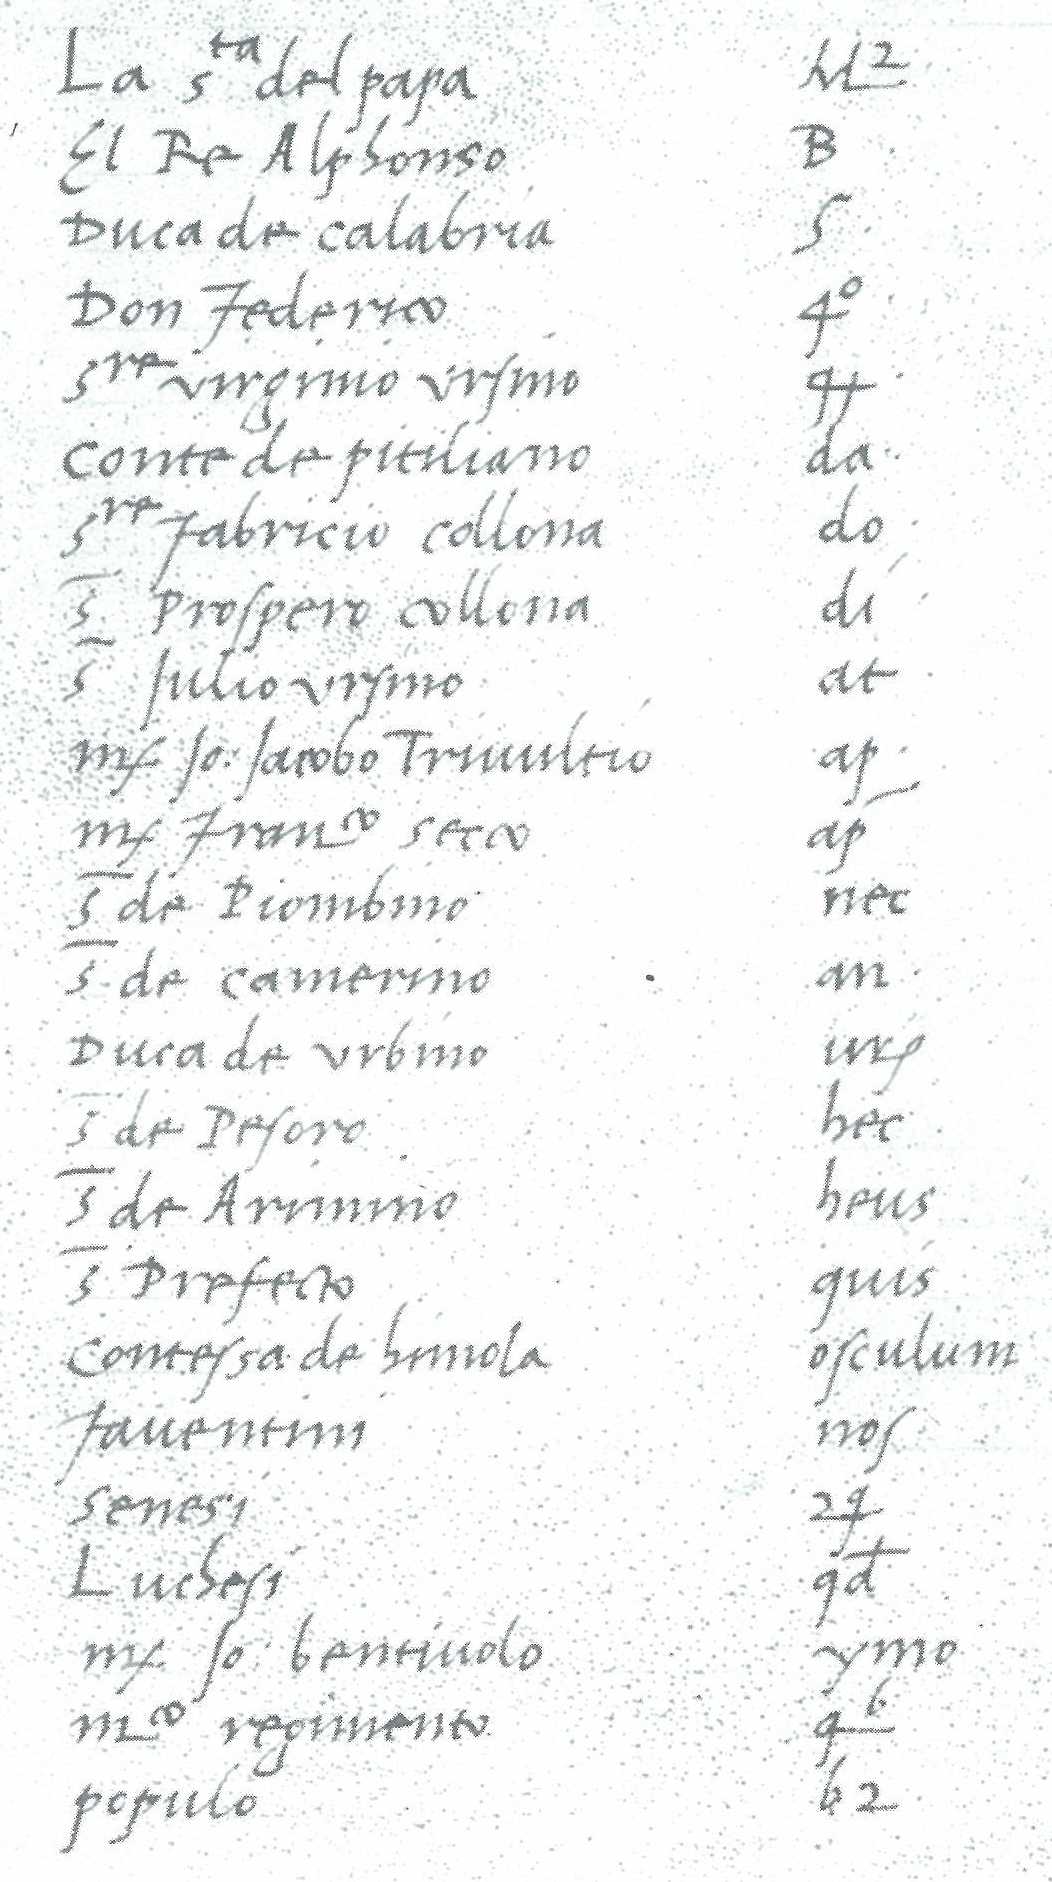 La s^ta del papa M^2.
El Re Alphonso B.
Duca de calabria S.
Don Federico 4^o.
S^re virginio vrsino
Conte de pitiliano da.
S^re Fabricio collona do.
S̄ Prospero collona di.
S̄ Julio vrsino at.
mſ Jo. Jacobo Triuultio ap.
mſ Fran^co secco ap̄
S̄ de Piombino nec
S̄ de camerino an.
Duca de vrbino
S̄ de Pesoro hec.
S̄ de Arimino heus
S̄ Prefecto quis
Contessa de himola osculum
Fauentini nos
Senesi 2q
Luchesi qd̄
mſ Jo bentiuolo ymo
m^co regimento q^b
populo b2.